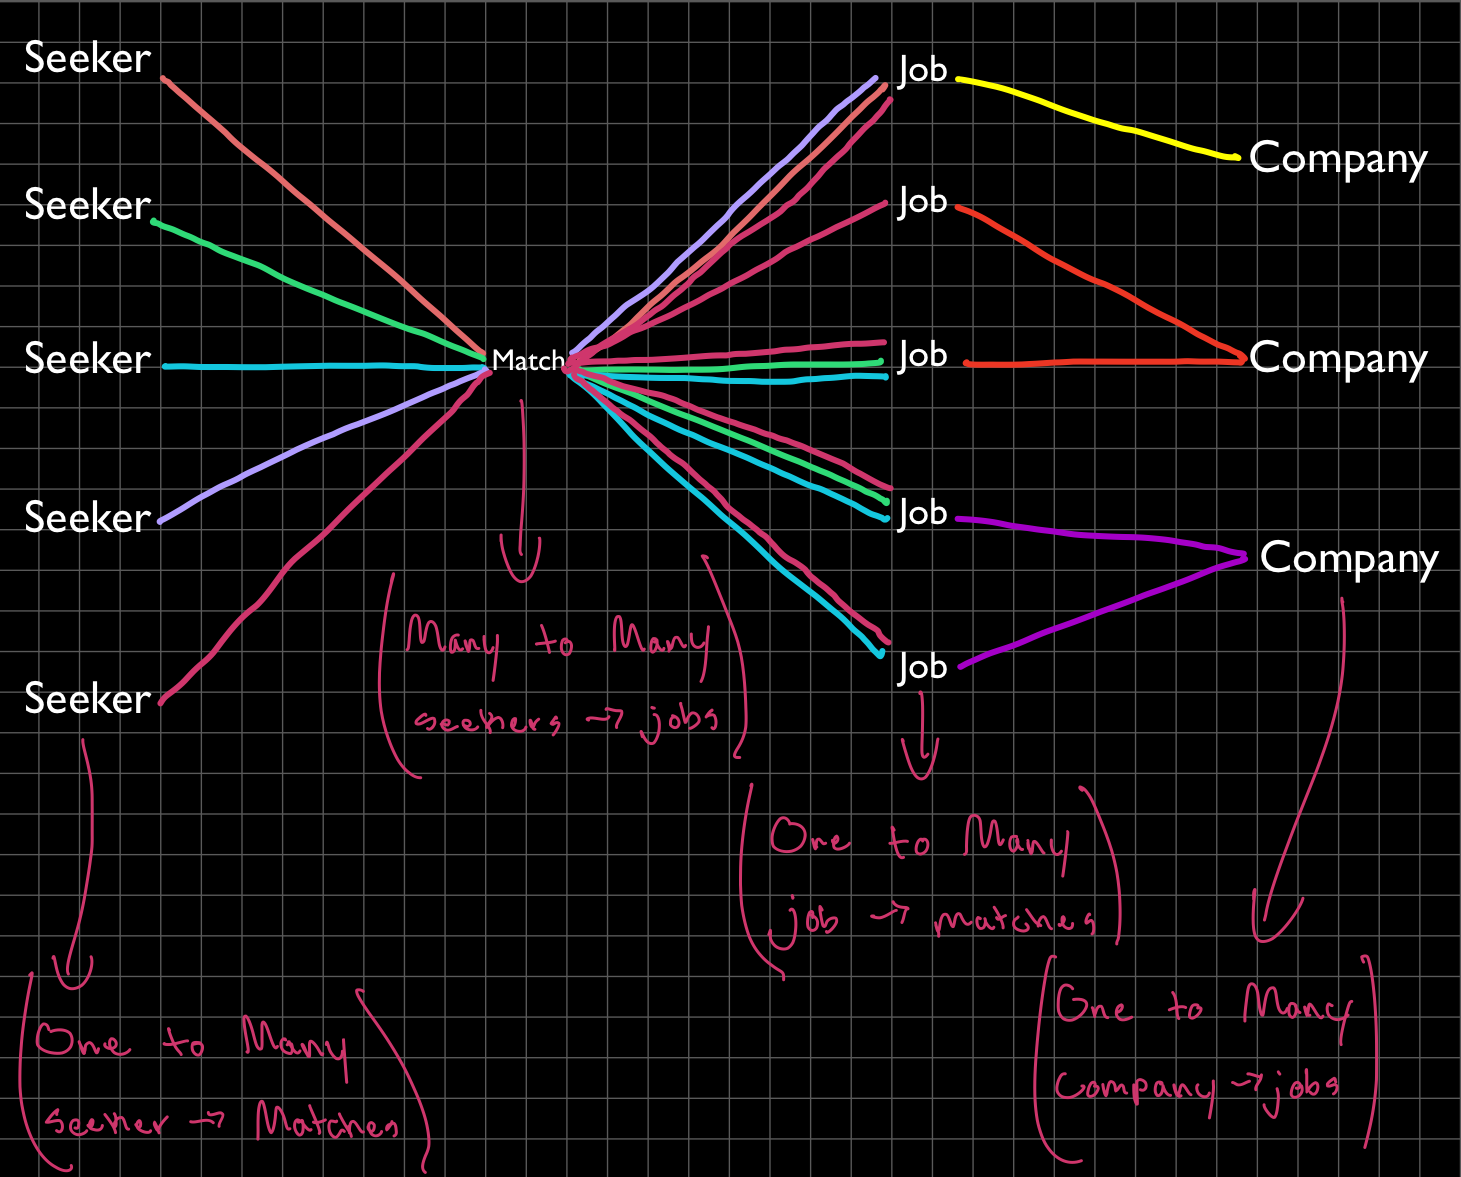 Seeker
Seeker
Seeker
Seeker
Seeker
Match
Job
Job
Job
Job
Job
Company
Company
Company
Many to Many
seekers → jobs
One to Many
job → matches
One to Many
Company → jobs
One to Many
seeker → Matches